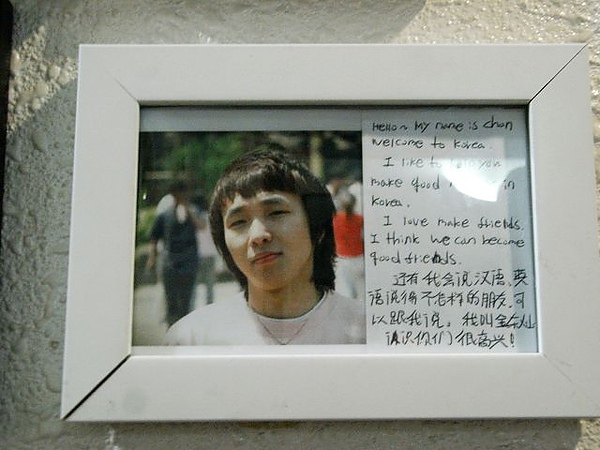 Hello~ My name is chan
welcome to korea.
I like to help you
make good in
korea.
I love make friends.
I think we can become
good friends.
还有我会说汉语,英
语说得不怎样的朋友,可
以跟我说。我叫金东灿
认识你们很高兴!